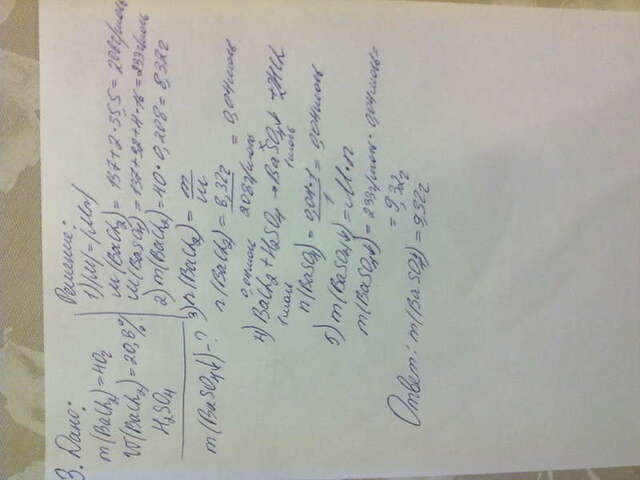 3. Дано:
m(BaCl₂)=40г
W(BaCl₂)=20,8%
H₂SO₄
m(BaSO₄↓)-?
Решение:
1) |M|=|Mr|
M(BaCl₂)=137+2·35,5=208г/моль
M(BaSO₄)=137+32+4·16=233г/моль
2) m(BaCl₂)=40·0,208=8,32г
3) n(BaCl₂)=m/M
n(BaCl₂)=8,32г/208г/моль=0,04моль
0,04моль
4) BaCl₂+H₂SO₄→BaSO₄↓+2HCl
1моль 1моль
n(BaSO₄)=0,04·1/1=0,04моль
5) m(BaSO₄↓)=M·n
m(BaSO₄↓)=233г/моль·0,04моль=
=9,32г
Ответ: m(BaSO₄↓)=9,32г